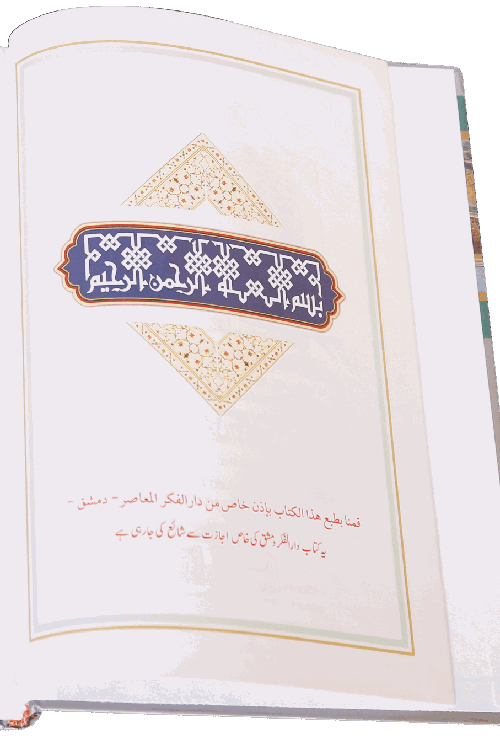 بسم الله الرحمن الرحيم
قمنا بطبع هذا الكتاب بإذن خاص من دار الفكر المعاصر - دمشق -
یہ کتاب دار الفکر دمشق کی خاص اجازت سے شائع کی جارہی ہے